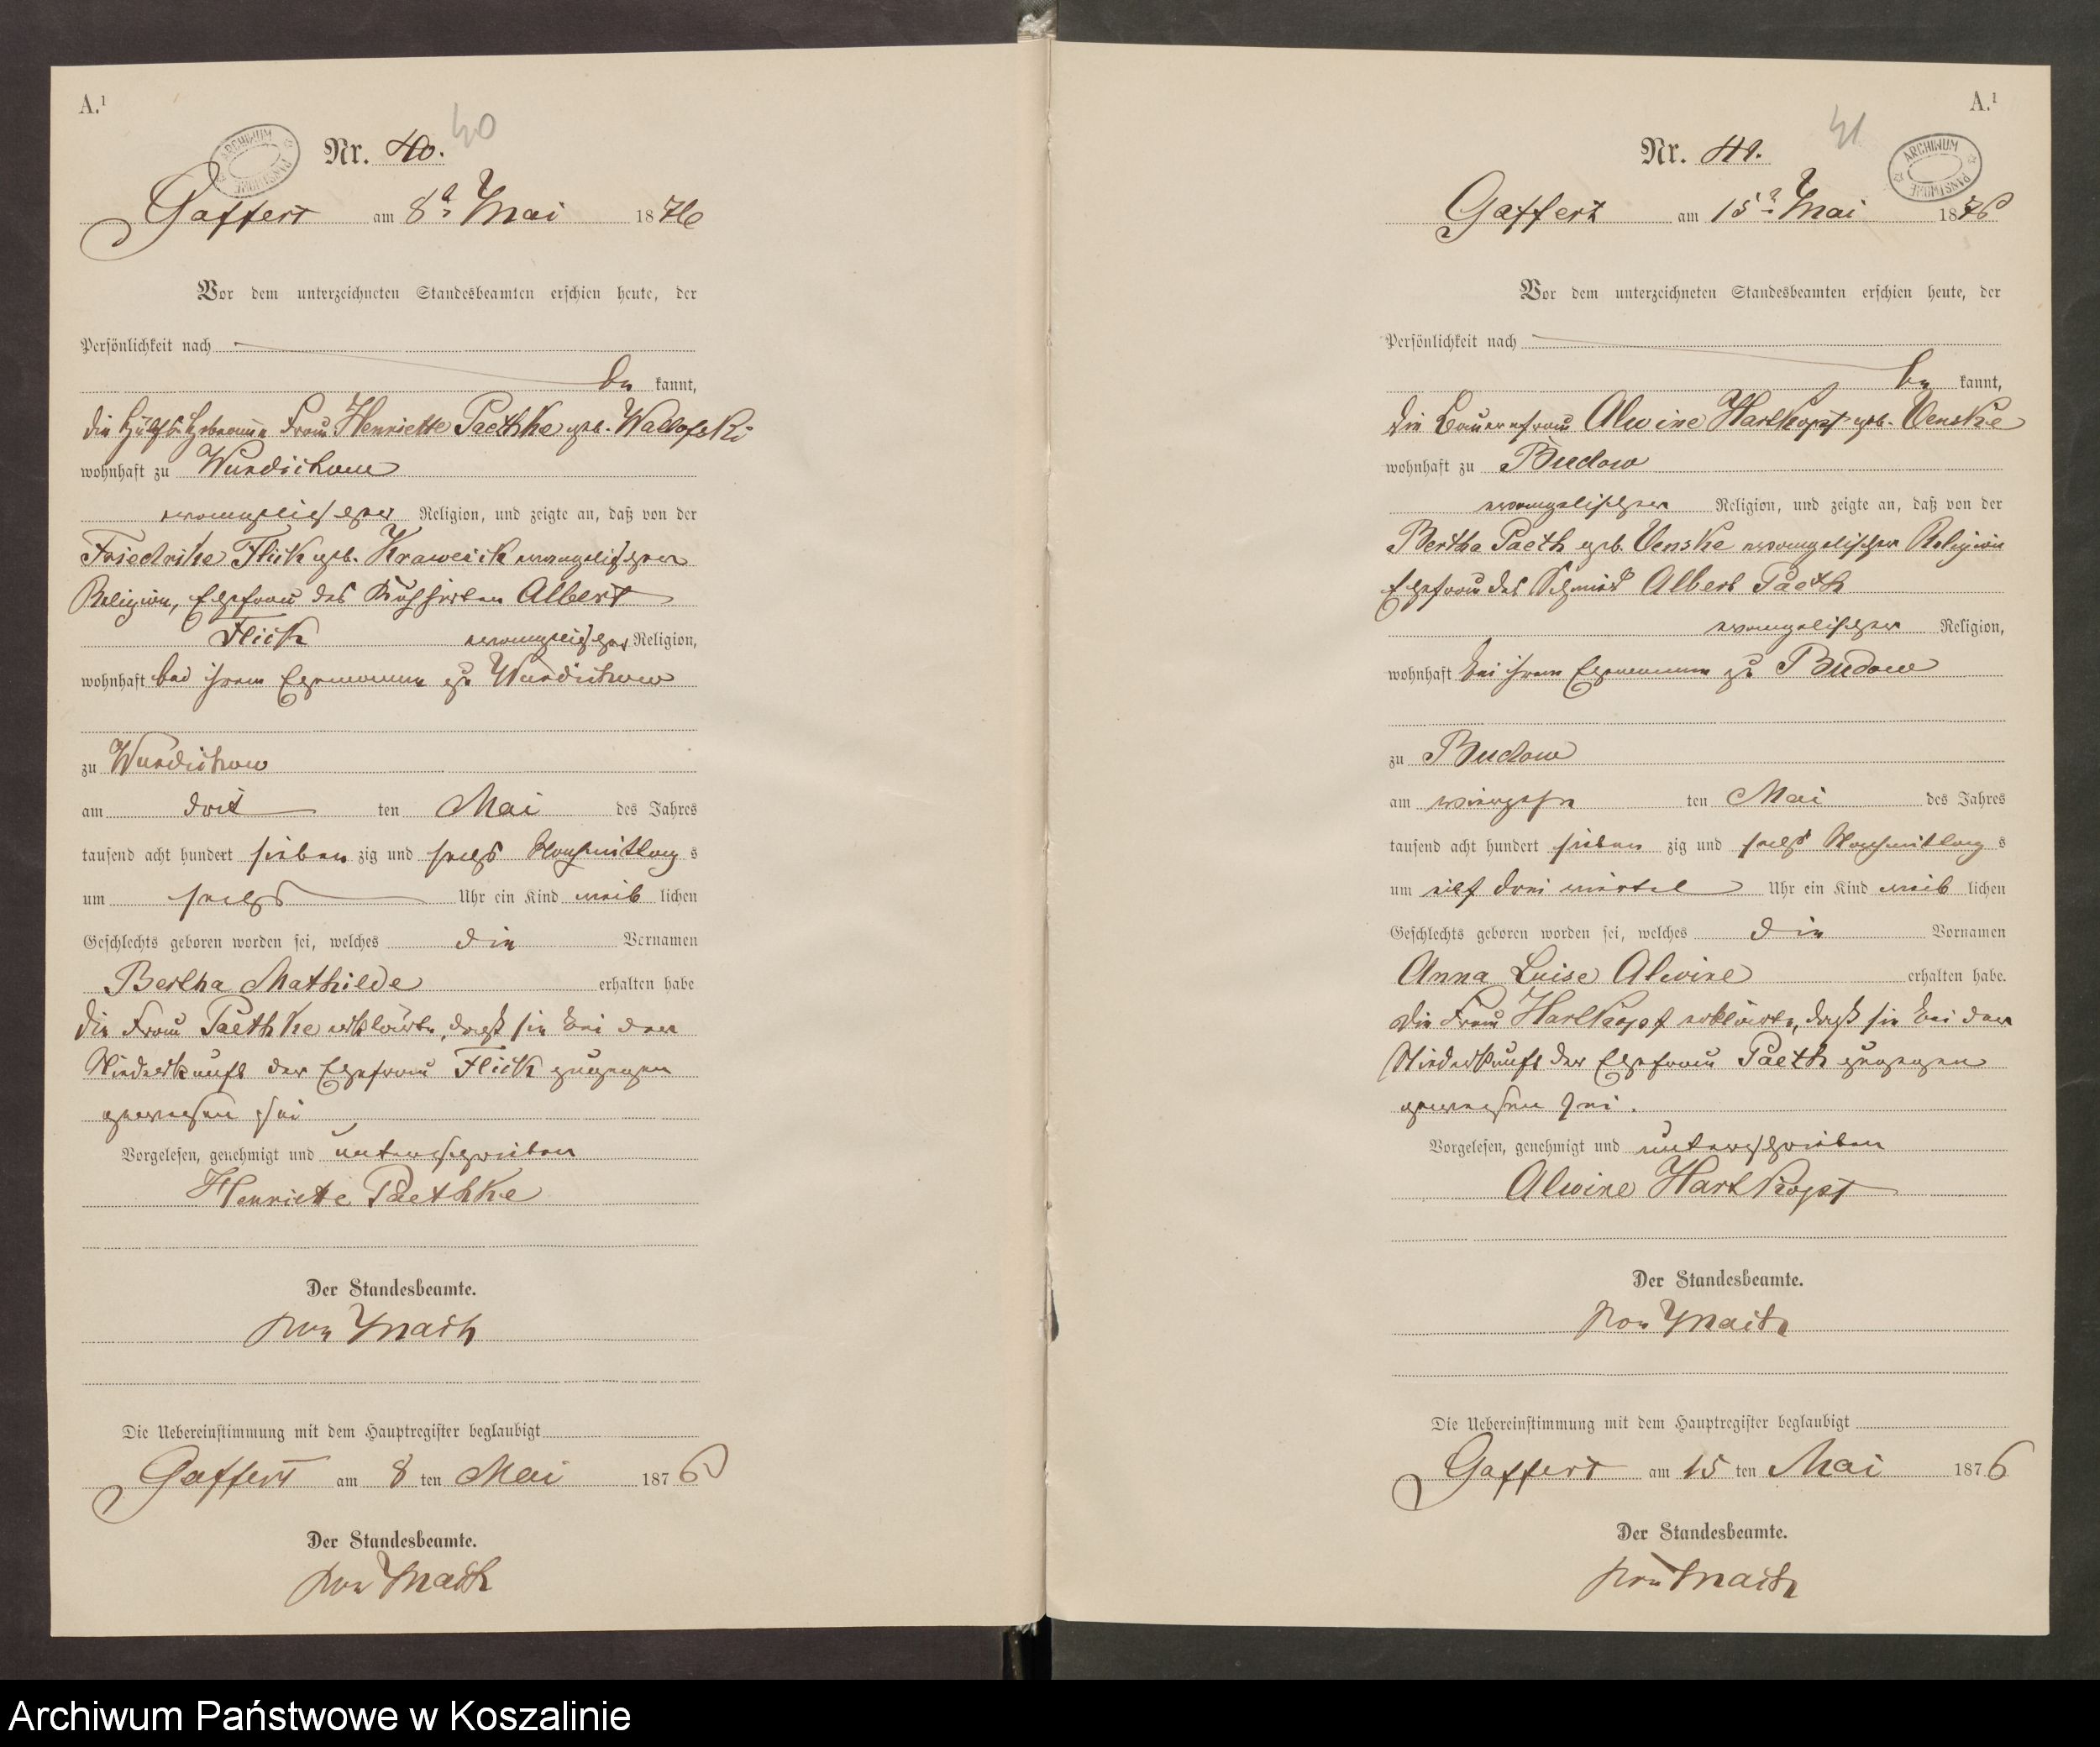 A.¹
ARCHIWUM PAŃSTWOWE
40
Nr. 40.
Gaffert am 8t Mai 1876
Vor dem unterzeichneten Standesbeamten erschien heute, der
Persönlichkeit nach
be kannt,
die Hebamme Frau Henriette Paethke geb.
wohnhaft zu Wundichow
evangelischer Religion, und zeigte an, daß von der
Friedrike Flick geb. Kraweick evangelischer
Religion, Ehefrau des Albert
Flick evangelischer Religion,
wohnhaft bei ihrem Ehemanne zu Wundichow
zu Wundichow
am drit ten Mai des Jahres
tausend acht hundert sieben zig und sechs Nachmittag s
um sechs Uhr ein Kind weib lichen
Geschlechts geboren worden sei, welches die Vornamen
Bertha Mathilde erhalten habe
Die Frau Paethke erklärte, daß sie bei der
Niederkunft der Ehefrau Flick zugegen
gewesen sei
Vorgelesen, genehmigt und unterschrieben
Henriette Paethke
Der Standesbeamte.
von
Die Uebereinstimmung mit dem Hauptregister beglaubigt
Gaffert am 8 ten Mai 1876
Der Standesbeamte.
von
A.¹
ARCHIWUM PAŃSTWOWE
41
Nr. 41.
Gaffert am 15t Mai 1876
Vor dem unterzeichneten Standesbeamten erschien heute, der
Persönlichkeit nach
be kannt,
die Bauernfrau Alwine Hartkopf geb. Venske
wohnhaft zu Budow
evangelischer Religion, und zeigte an, daß von der
Bertha Paeth geb. Venske evangelischer Religion
Ehefrau des Schmied Albert Paeth
evangelischer Religion,
wohnhaft bei ihrem Ehemanne zu Budow
zu Budow
am vierzehn ten Mai des Jahres
tausend acht hundert sieben zig und sechs Nachmittag s
um elf drei viertel Uhr ein Kind weib lichen
Geschlechts geboren worden sei, welches die Vornamen
Anna Luise Alwine erhalten habe.
Die Frau Hartkopf erklärte, daß sie bei der
Niederkunft der Ehefrau Paeth zugegen
gewesen sei.
Vorgelesen, genehmigt und unterschrieben
Alwine Hartkopf
Der Standesbeamte.
von
Die Uebereinstimmung mit dem Hauptregister beglaubigt
Gaffert am 15 ten Mai 1876
Der Standesbeamte.
von
Archiwum Państwowe w Koszalinie